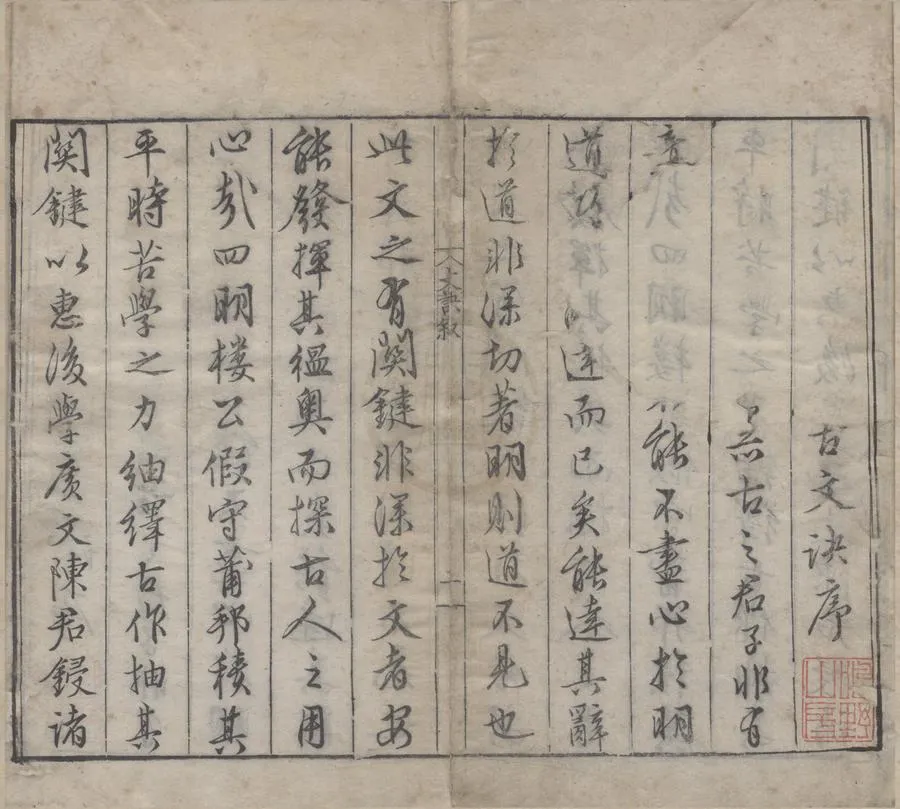 古文訣序
古之君子非有
意能不盡心於明
道達而已矣能達其辭
於道非深切著明則道不見也
文訣叙
此文之有關鍵非深於文者安
能發揮其縕奧而探古人之用
心哉四明樓公假守莆邦積其
平時苦學之力紬繹古作抽其
關鍵以惠後學廣文陳君鋟諸